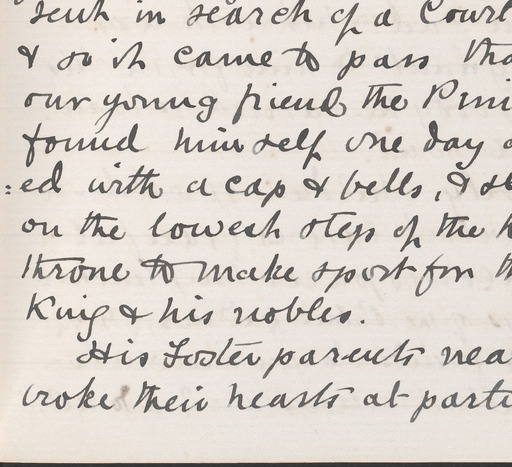 sent in search of a Court
& so it came to pass tha
our young friend the Prin
found himself one day
:ed with a cap & bells, & s
on the lowest step of the K
throne to make sport for th
King & his nobles.
His Foster parents nea
broke their hearts at parti